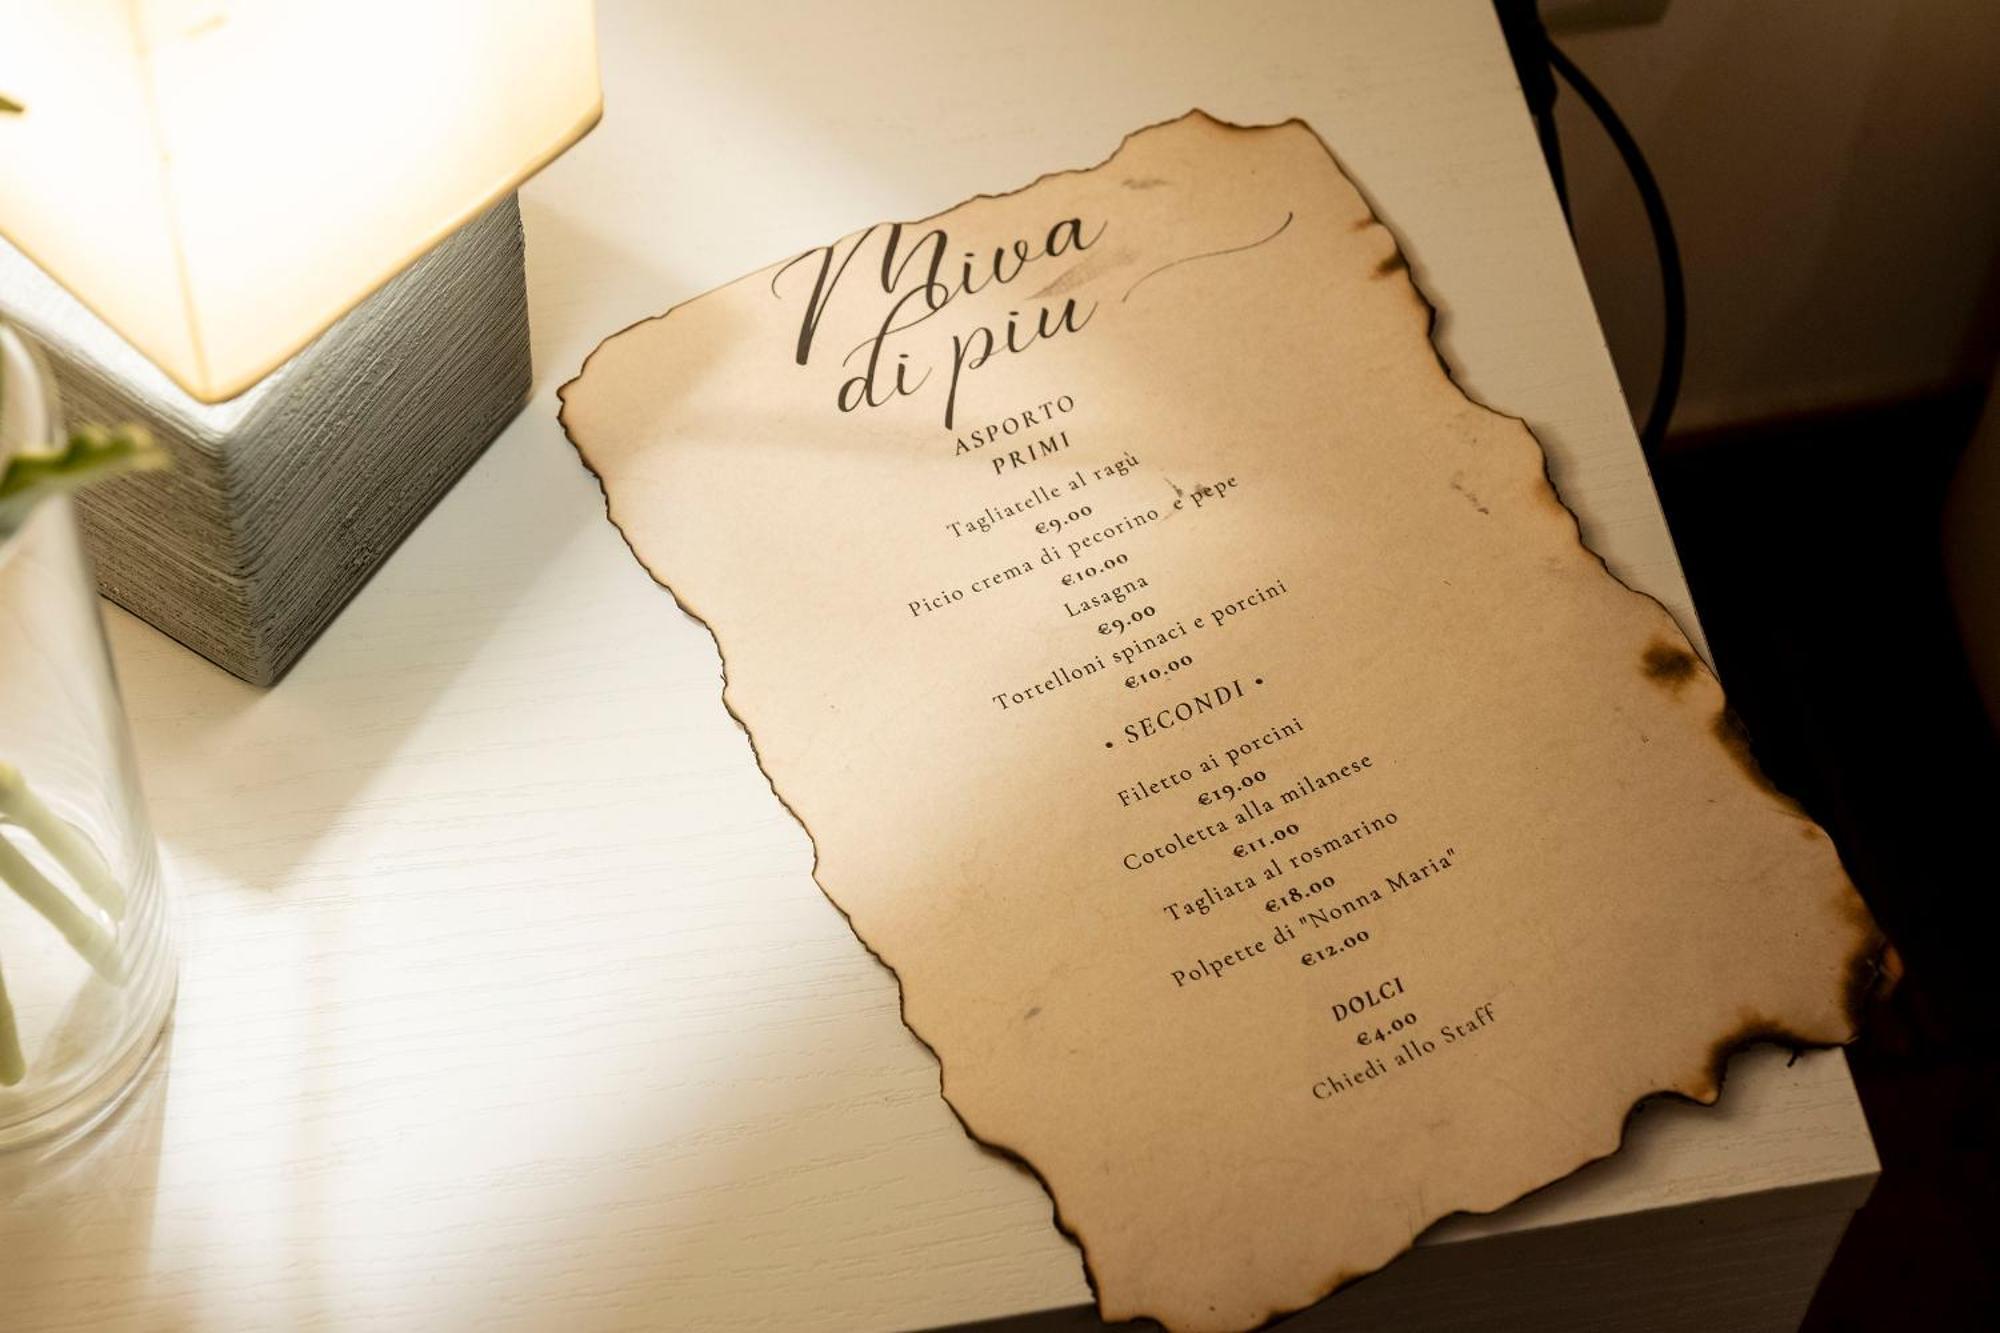 Miva
di piu
ASPORTO
PRIMI
Tagliatelle al ragù
€9.00
Picio crema di pecorino e pepe
€10.00
Lasagna
€9.00
Tortelloni spinaci e porcini
€10.00
• SECONDI •
Filetto ai porcini
€19.00
Cotoletta alla milanese
€11.00
Tagliata al rosmarino
€18.00
Polpette di "Nonna Maria"
€12.00
DOLCI
€4.00
Chiedi allo Staff